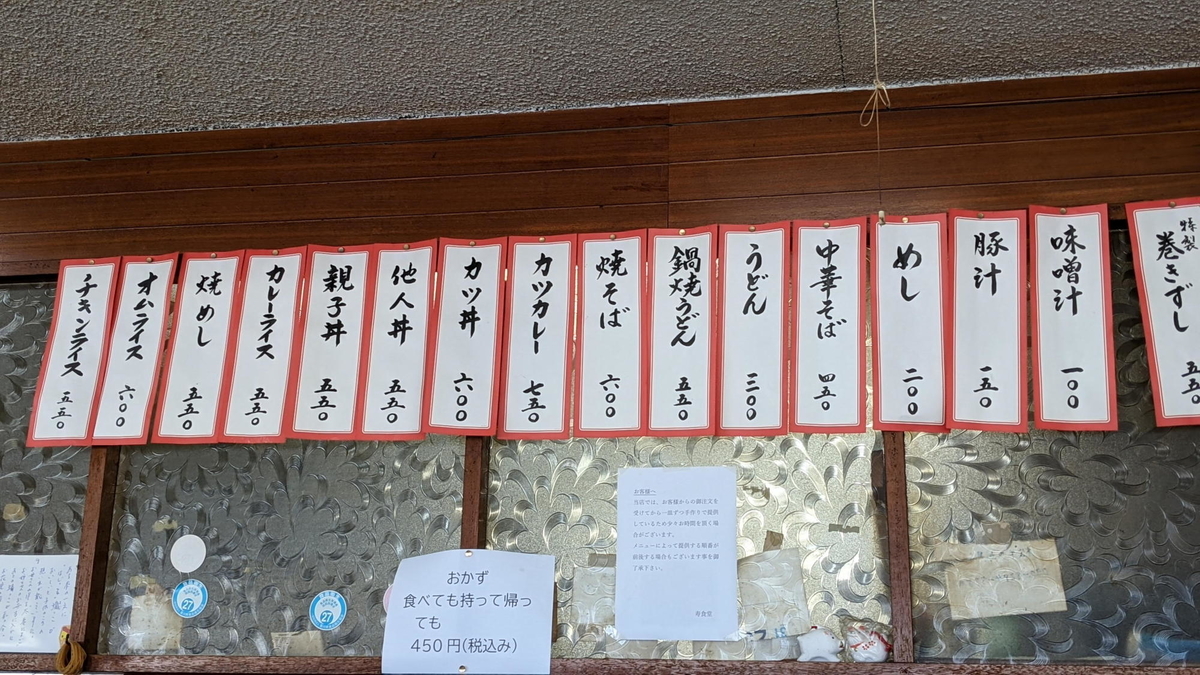 特製
巻きずし
味噌汁 一〇〇
豚汁 一五〇
めし 二〇〇
中華そば 四五〇
うどん 三〇〇
鍋焼うどん 五五〇
焼そば 六〇〇
カツカレー 七五〇
カツ丼 六〇〇
他人丼 五五〇
親子丼 五五〇
カレーライス 五五〇
焼めし 五五〇
オムライス 六〇〇
チキンライス 五五〇
お客様へ
当店では、お客様からの御注文を
受けてから一品ずつ手作りで提供
しているため少々お時間を頂く場
合がございます。
メニューによって提供する順番が
前後する場合もございます事を御
了承下さい。
寿食堂
おかず
食べても持って帰っ
ても
450円(税込み)
27
27